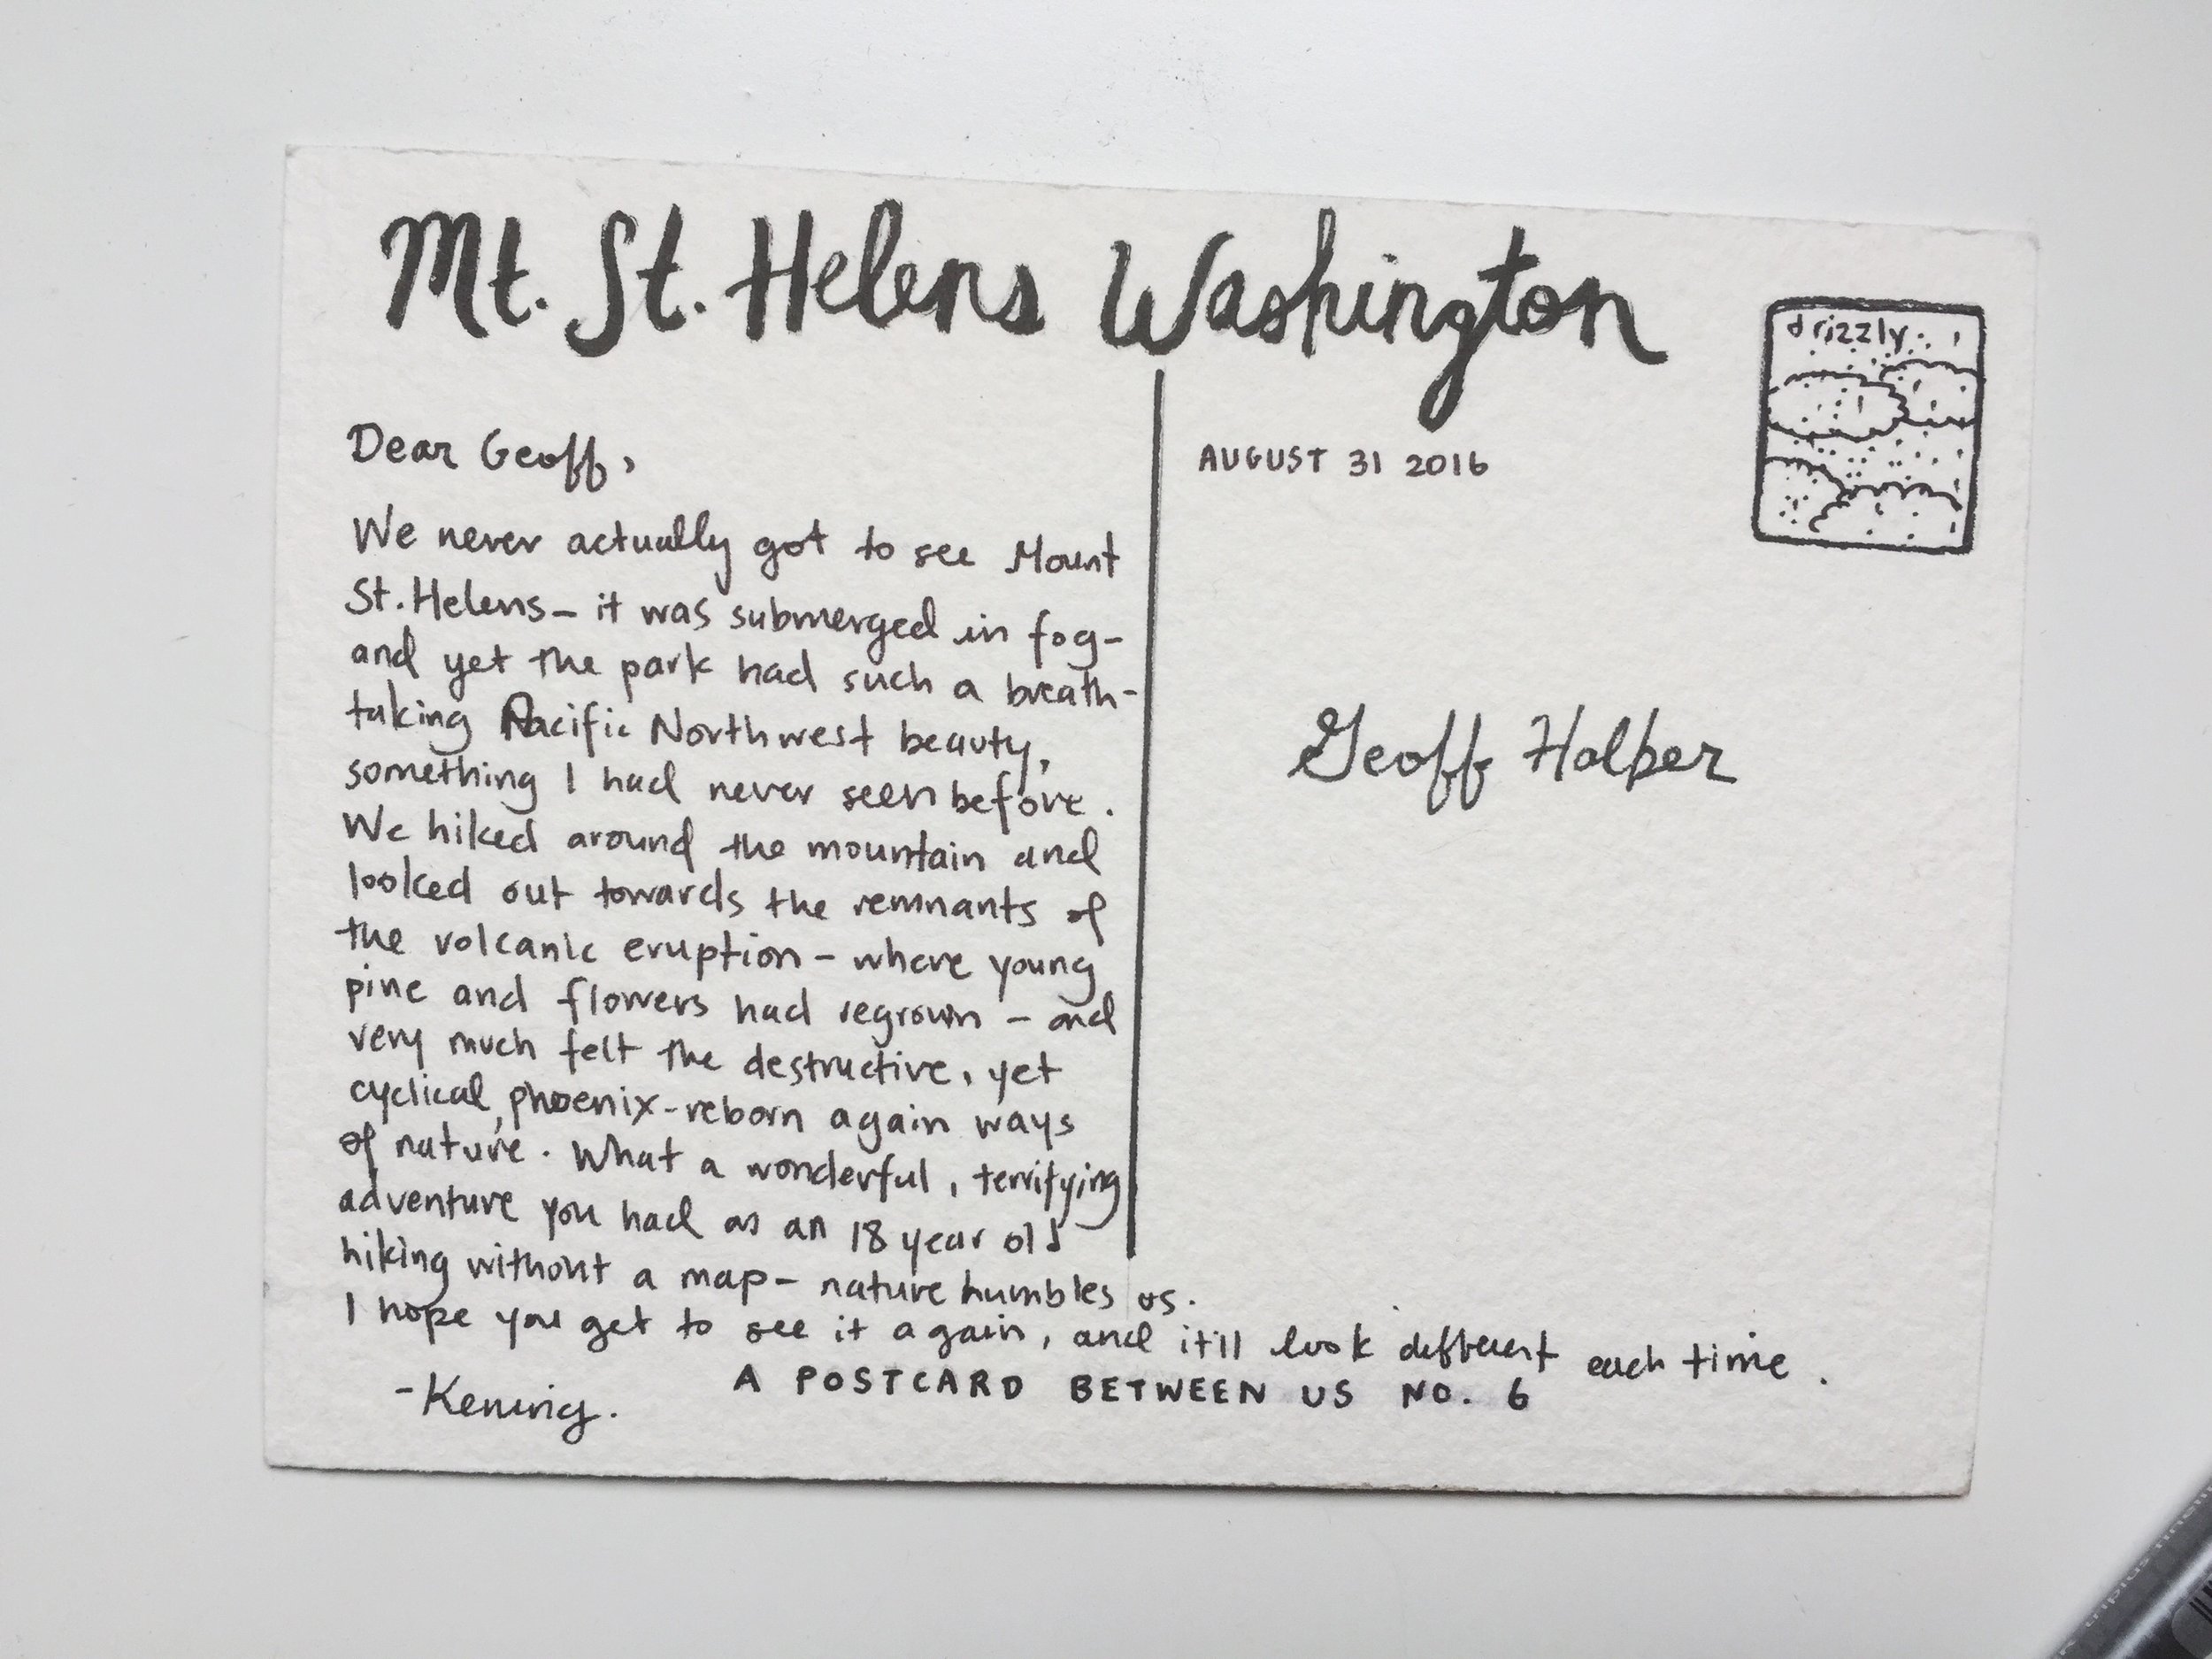 Mt. St. Helens Washington
drizzly
Dear Geoff,
We never actually got to see Mount
St. Helens – it was submerged in fog –
and yet the park had such a breath-
taking Pacific Northwest beauty,
something I had never seen before.
We hiked around the mountain and
looked out towards the remnants of
the volcanic eruption – where young
pine and flowers had regrown – and
very much felt the destructive, yet
cyclical, phoenix-reborn again ways
of nature. What a wonderful, terrifying
adventure you had as an 18 year old
hiking without a map – nature humbles us.
I hope you get to see it again, and it'll look different each time.
- Kening.
A POSTCARD BETWEEN US NO. 6
AUGUST 31 2016
Geoff Holber